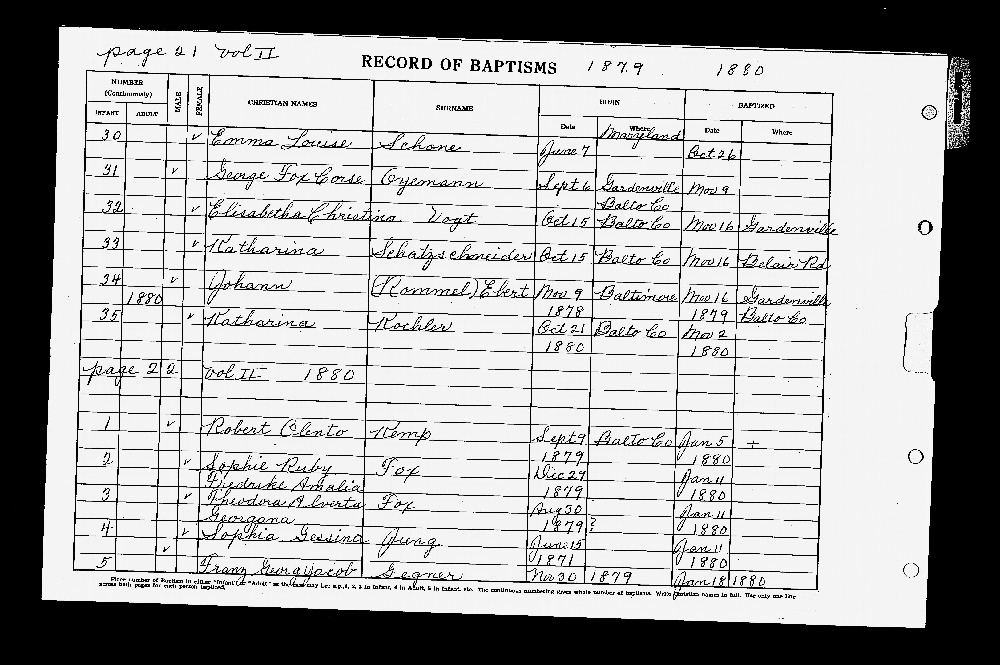 page 21 Vol II RECORD OF BAPTISMS 1879 1880
NUMBER (Continuously) MALE FEMALE CHRISTIAN NAMES SURNAME BORN BAPTIZED
INFANT ADULT Date Where Date Where
Maryland
30 ✓ Emma Louise Schone June 7 Oct 26
31 ✓ George Fox Corse Oyemann Sept 6 Gardenville Nov 9
Balto Co
32 ✓ Elisabetha Christina Vogt Oct 15 Balto Co Nov 16 Gardenville
33 ✓ Katharina Schatzschneider Oct 15 Balto Co Nov 16 Belair Rd
34 ✓ Johann (Rommel) Ebert Nov 9 Baltimore Nov 16 Gardenville
1880 1878 1879 Balto Co
35 ✓ Katharina Kochler Oct 21 Balto Co Nov 2
1880 1880
page 22 Vol II 1880
1 ✓ Robert Clento Kemp Sept 9 Balto Co Jan 5 +
1879 1880
2 ✓ Sophie Ruby Fox Dec 29 Jan 11
Fiedrike Amalia 1879 1880
3 ✓ Theodora Alverta Fox Aug 30 Jan 11
Georgana 1879? 1880
4 ✓ Sophia Gessina Jung June 15 Jan 11
1871 1880
5 ✓ Franz Georg Jacob Gegner Nov 30 1879 Jan 18 1880
Place number of Baptism in either "Infant" or "Adult" as the case may be: e.g. 1, 2, 3 in Infant, 4 in Adult, 5 in Infant, etc. The continuous numbering gives whole number of baptisms. Write Christian names in full. Use only one line
across both pages for each person baptized.